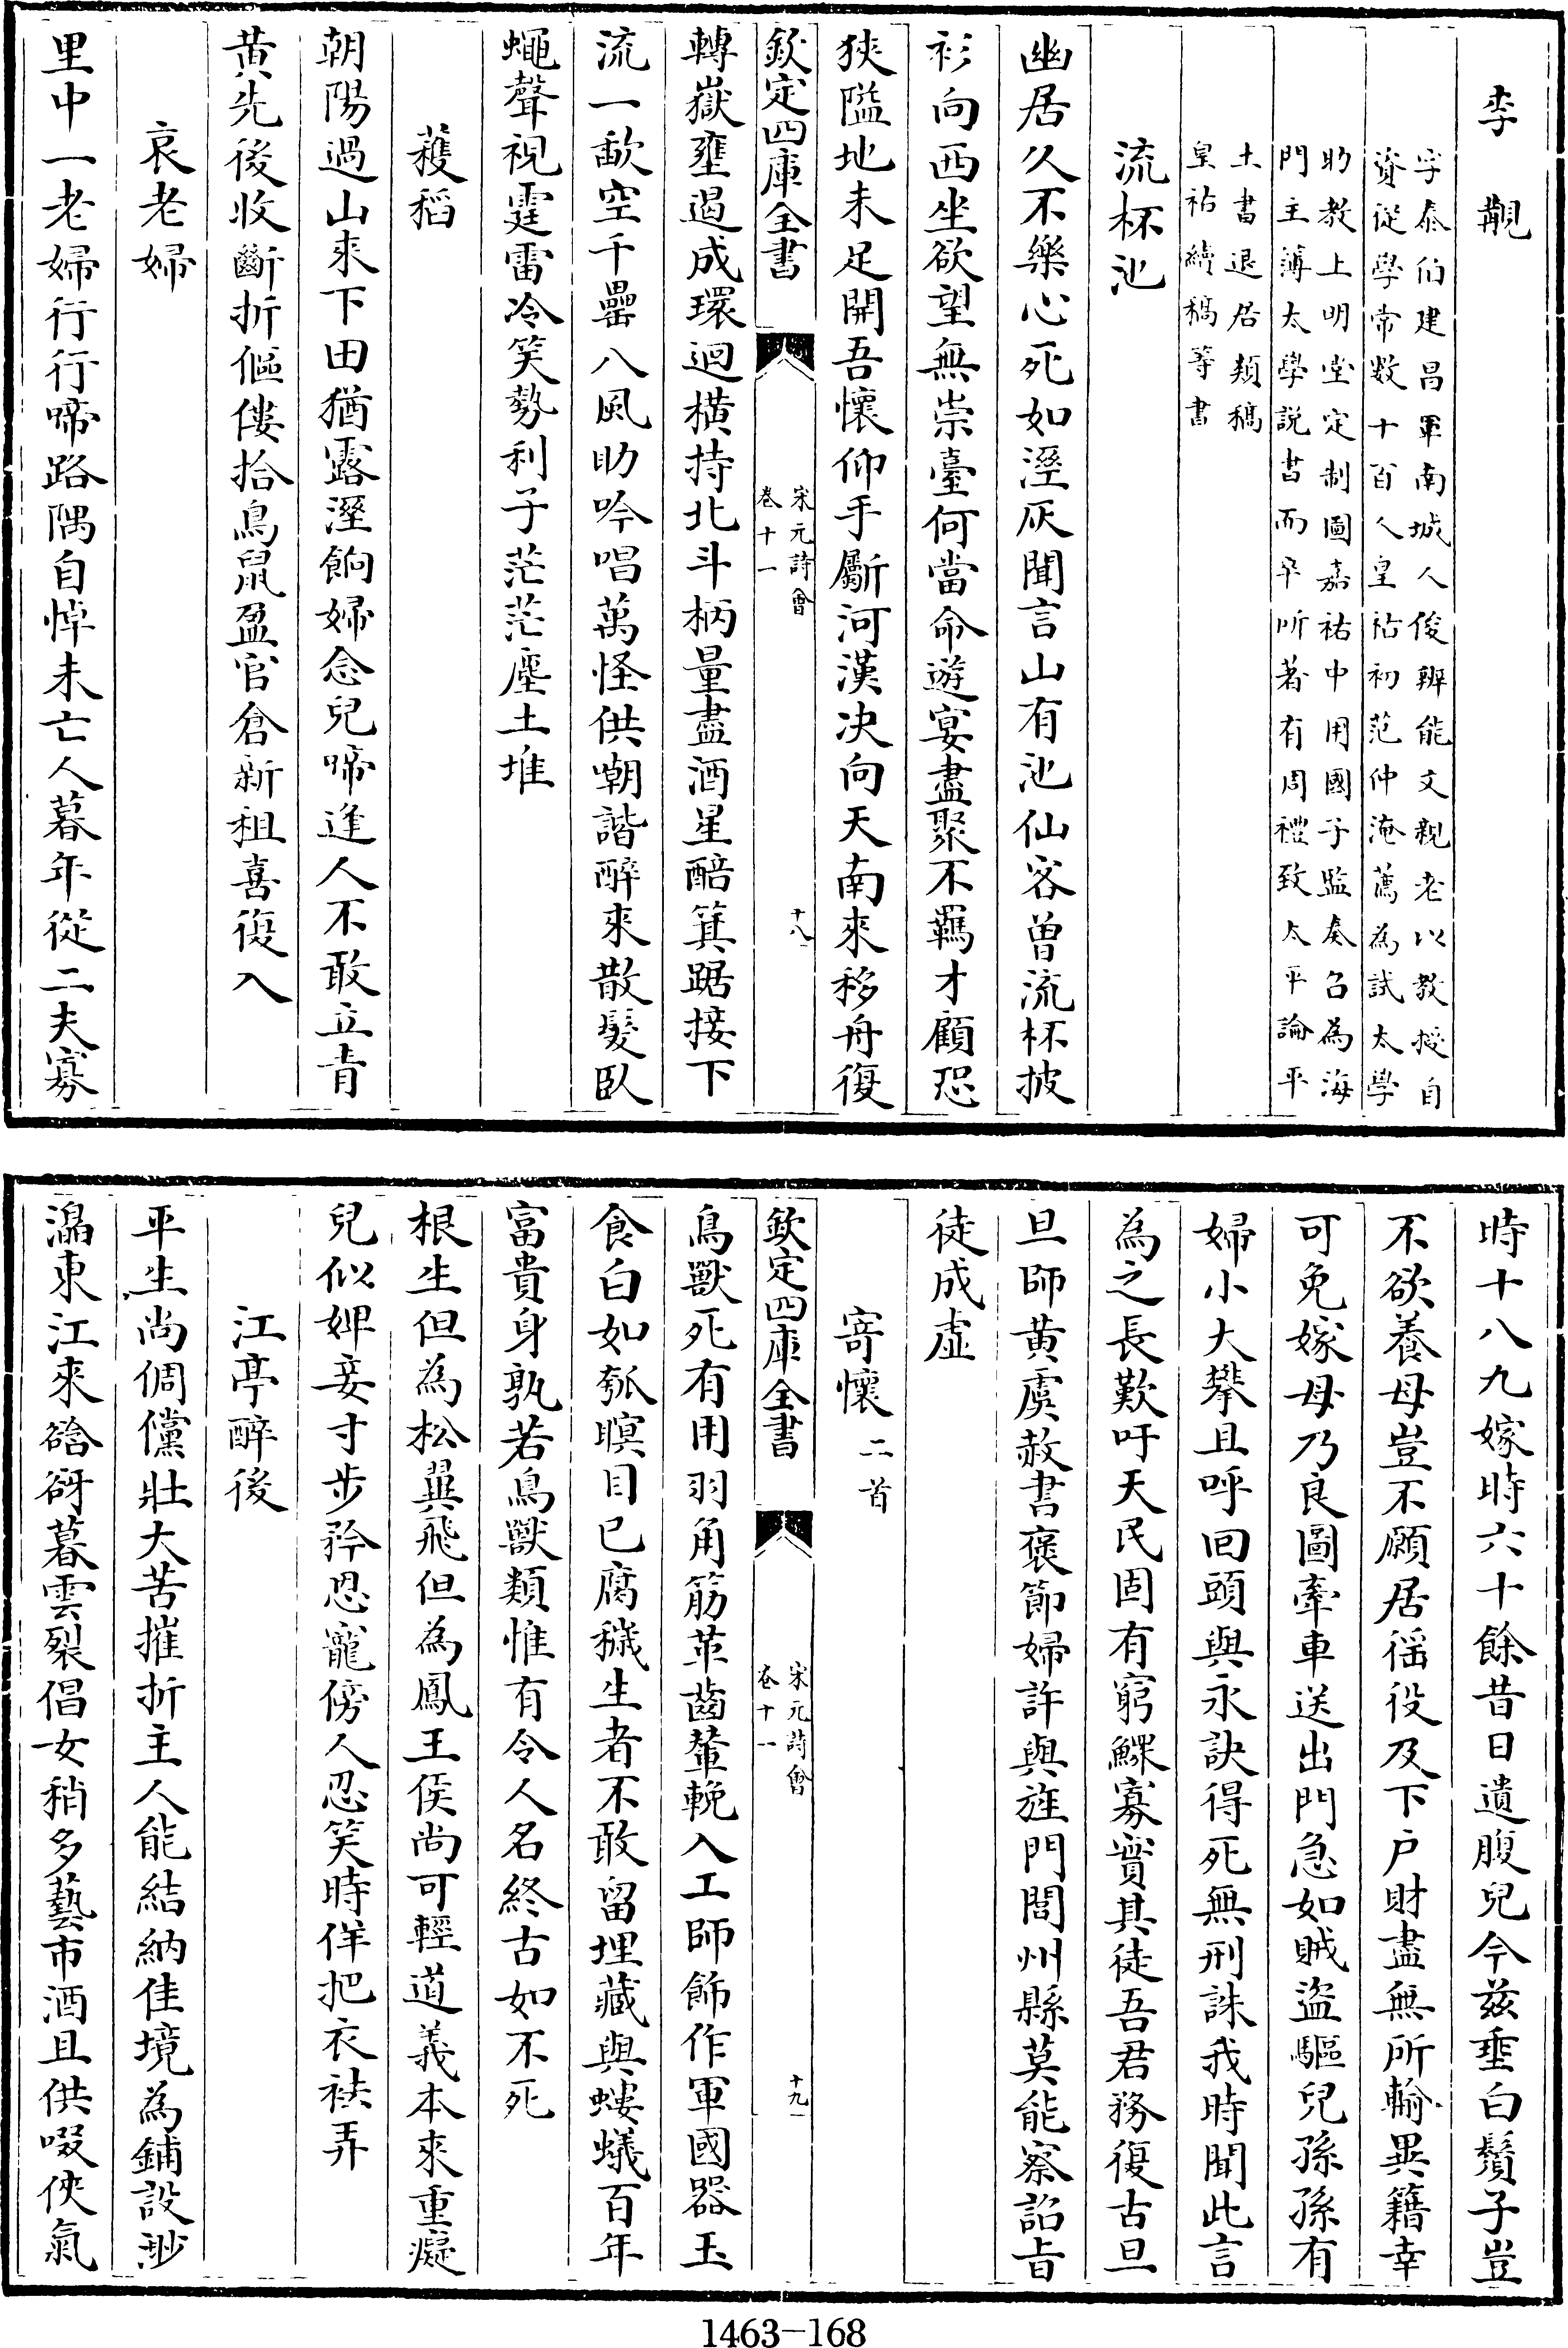 李覯
字泰伯建昌軍南城人俊辨能文親老以教授自
資從學常數十百人皇祐初范仲淹薦為試太學
助教上明堂定制圖嘉祐中用國子監奏召為海
門主薄太學説書而卒所著有周禮致太平論平
土書退居類稿
皇祐續稿等書
流杯池
幽居久不樂心死如溼灰聞言山有池仙客曽流杯披
衫向西坐欲望無崇臺何當命遊宴盡聚不羈才顧恐
狹隘地未足開吾懷仰手斸河漢決向天南來移舟復
欽定四庫全書
宋元詩會
卷十一
十八
轉嶽壅遏成環迴橫持北斗柄量盡酒星醅箕踞接下
流一歃空千罍八風助吟唱萬怪供嘲諧醉來散髮臥
蠅聲視霆雷冷笑勢利子茫茫塵土堆
穫稻
朝陽過山來下田猶露溼餉婦念兒啼逢人不敢立青
黄先後收斷折傴僂拾鳥鼠盈官倉新租喜復入
哀老婦
里中一老婦行行啼路隅自悼未亡人暮年從二夫寡
時十八九嫁時六十餘昔日遺腹兒今兹垂白鬚子豈
不欲養母豈不願居徭役及下户財盡無所輸異籍幸
可免嫁母乃良圖牽車送出門急如賊盗驅兒孫孫有
婦小大攀且呼回頭與永訣得死無刑誅我時聞此言
為之長歎吁天民固有窮鰥寡實其徒吾君務復古旦
旦師黄虞赦書褒節婦許與旌門閭州縣莫能察詔㫖
徒成虚
寄懷二首
欽定四庫全書
宋元詩會
卷十一
十九
鳥獸死有用羽角筋革齒輦輓入工師飾作軍國器玉
食白如瓠瞑目已腐穢生者不敢留埋藏與螻蟻百年
富貴身孰若鳥獸類惟有令人名終古如不死
根生但為松異飛但為鳳王侯尚可輕道義本來重癡
兒似婢妾寸步矜恩寵傍人忍笑時佯把衣袪弄
江亭醉後
平生尚倜儻壯大苦摧折主人能結納佳境為鋪設渺
㶉東江來谽谺暮雲裂倡女稍多藝市酒且供啜俠氣
1463-168